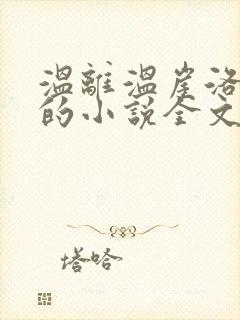 温離温崖洛
的小說全文
塔哈